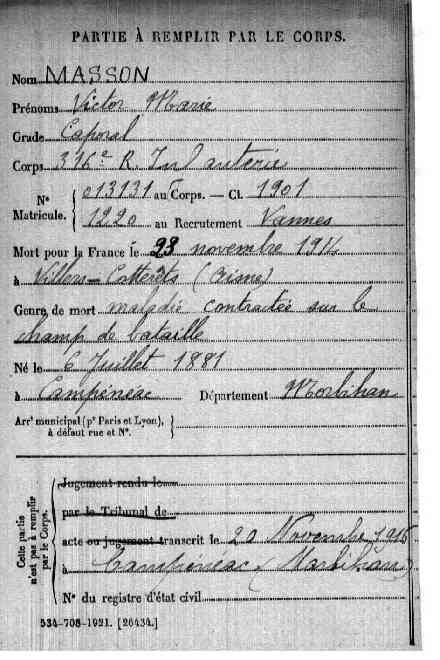 PARTIE À REMPLIR PAR LE CORPS.
Nom MASSON
Prénoms Victor Marie
Grade Caporal
Corps 316e R. Infanterie
N° Matricule. { 013131 au Corps. — Cl. 1901
1220 au Recrutement Vannes
Mort pour la France le 23 novembre 1914
à Villers-Cotterêts (Aisne)
Genre de mort maladie contractée sur le
champ de bataille
Né le 6 Juillet 1881
à Campénéac Département Morbihan
Arrt municipal (pr Paris et Lyon),
à défaut rue et N°.
Cette partie
n'est pas à remplir
par le Corps.
Jugement rendu le
par le Tribunal de
acte ou jugement transcrit le 20 Novembre 1916
à Campénéac (Morbihan)
N° du registre d'état civil
534-708-1921. [26434.]